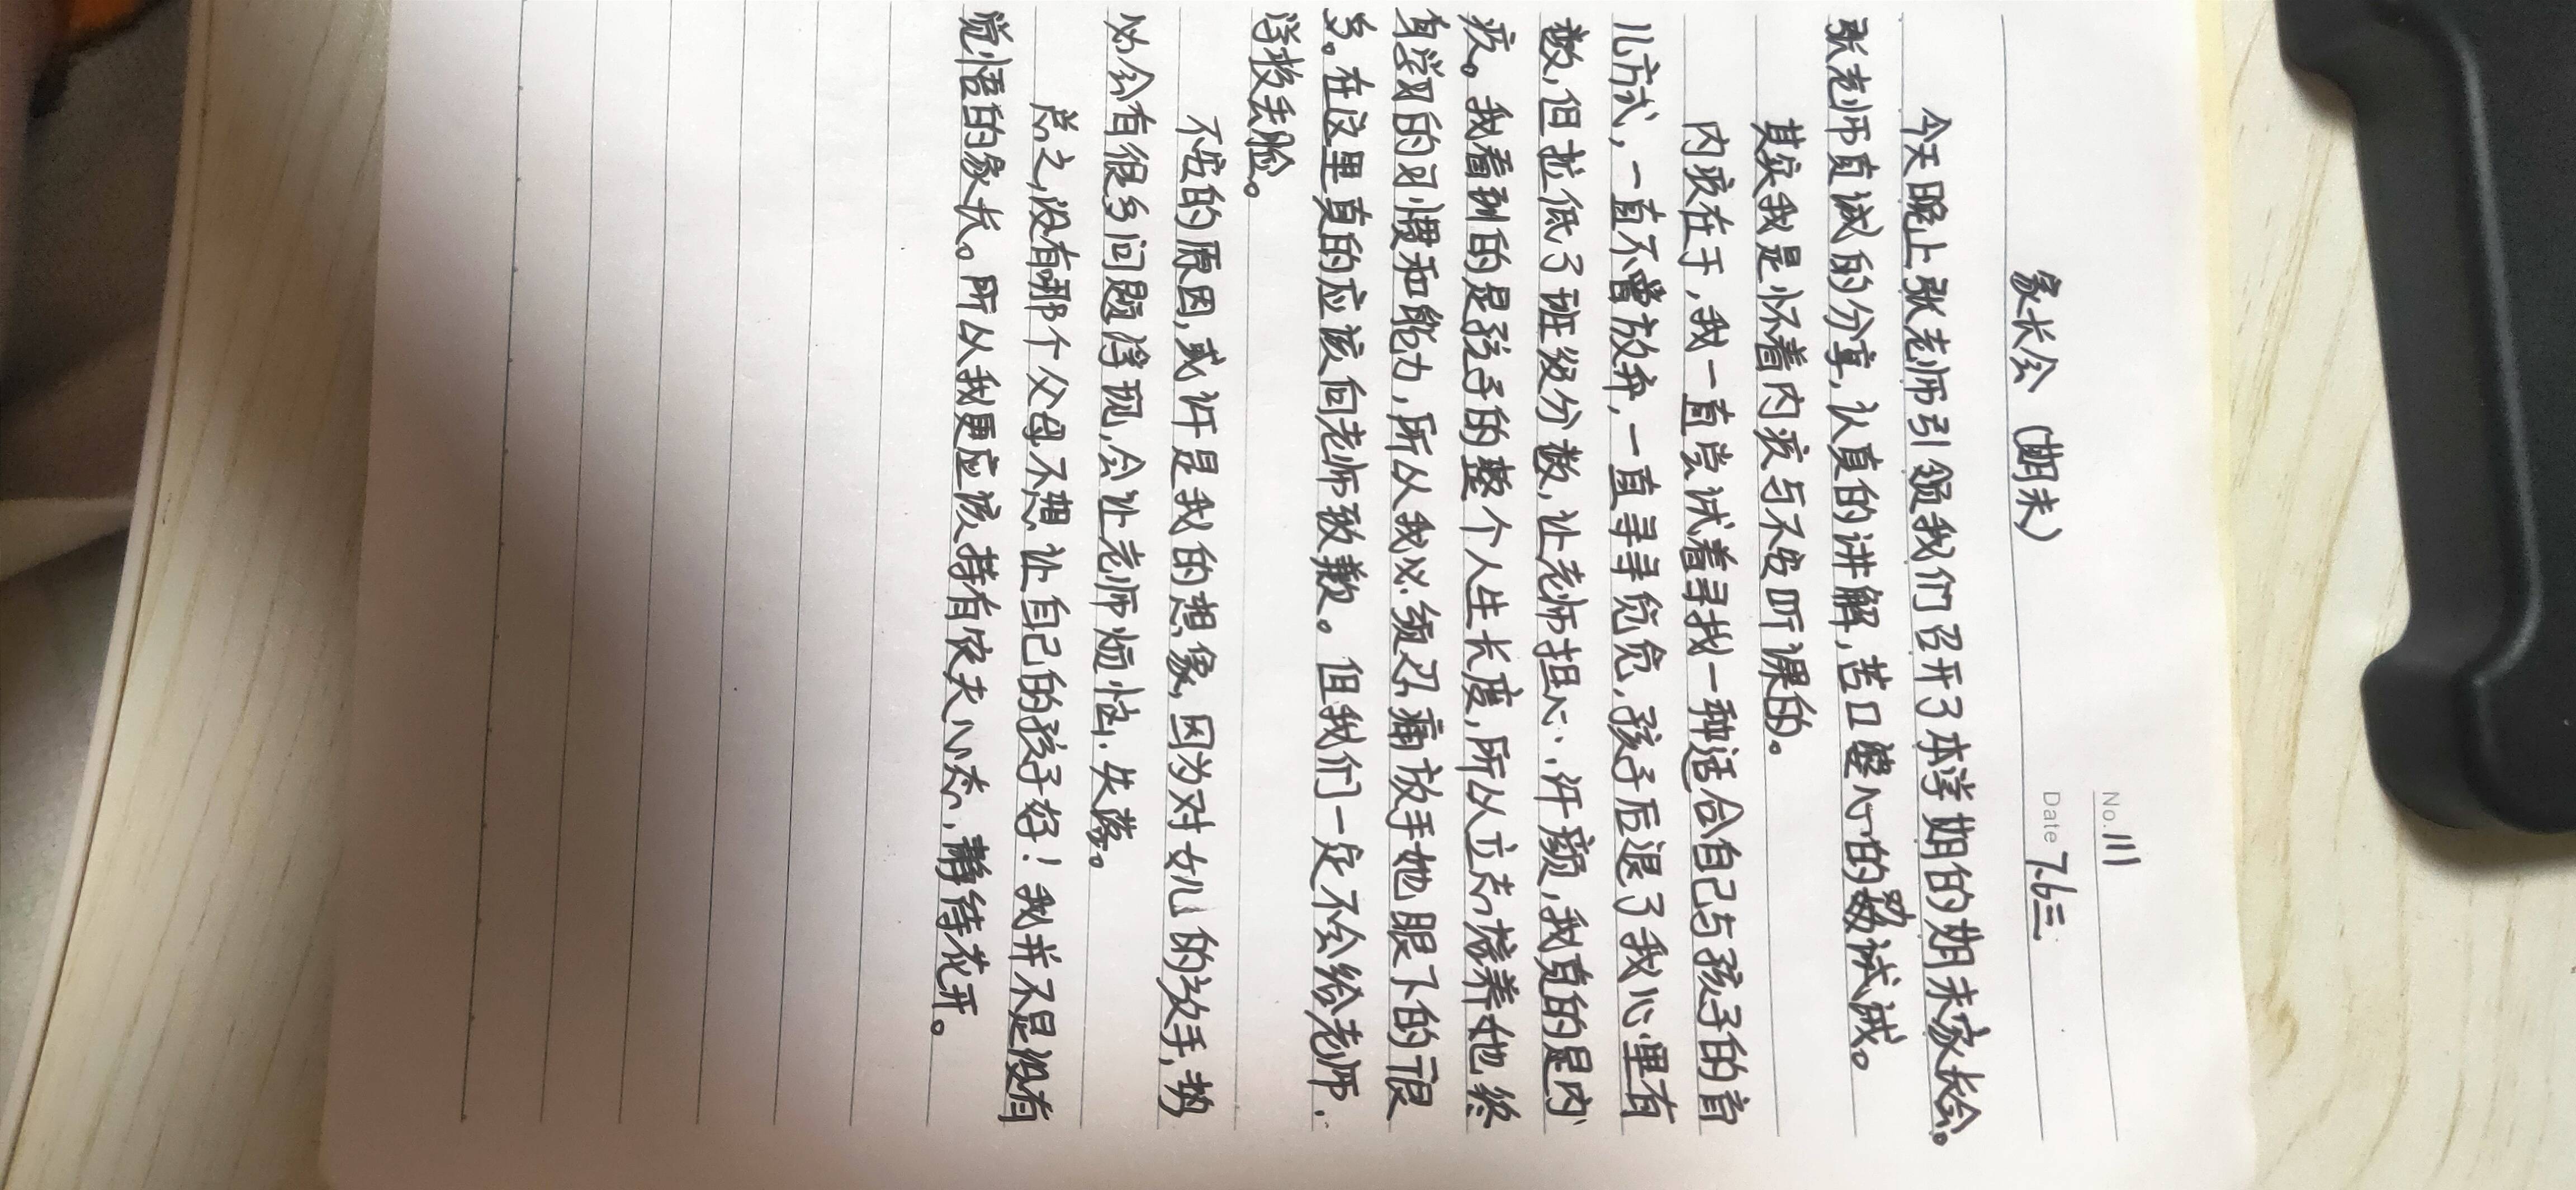 No. 111
Date 7.6三
家长会（期末）
今天晚上张老师引领我们召开了本学期的期末家长会。
张老师真诚的分享，认真的讲解，苦口婆心的劝试诫。
其实我是怀着内疚与不安听课的。
内疚在于，我一直尝试着寻找一种适合自己与孩子的育
儿方式，一直不曾放弃，一直寻寻觅觅，孩子后退了我心里有
数，但拉低了班级分数，让老师担心、汗颜，我真的是内
疚。我看到的是孩子的整个人生长度，所以立志培养她终
身学习的习惯和能力，所以我必须忍痛放手她眼下的很
多。在这里真的应该向老师致歉。但我们一定不会给老师、
学校丢脸。
不安的原因，或许是我的想象，因为对女儿的放手，势
必会有很多问题浮现，会让老师烦恼、失落。
总之，没有哪个父母不想让自己的孩子好！我并不是没有
觉悟的家长。所以我更应该持有农夫心态，静待花开。